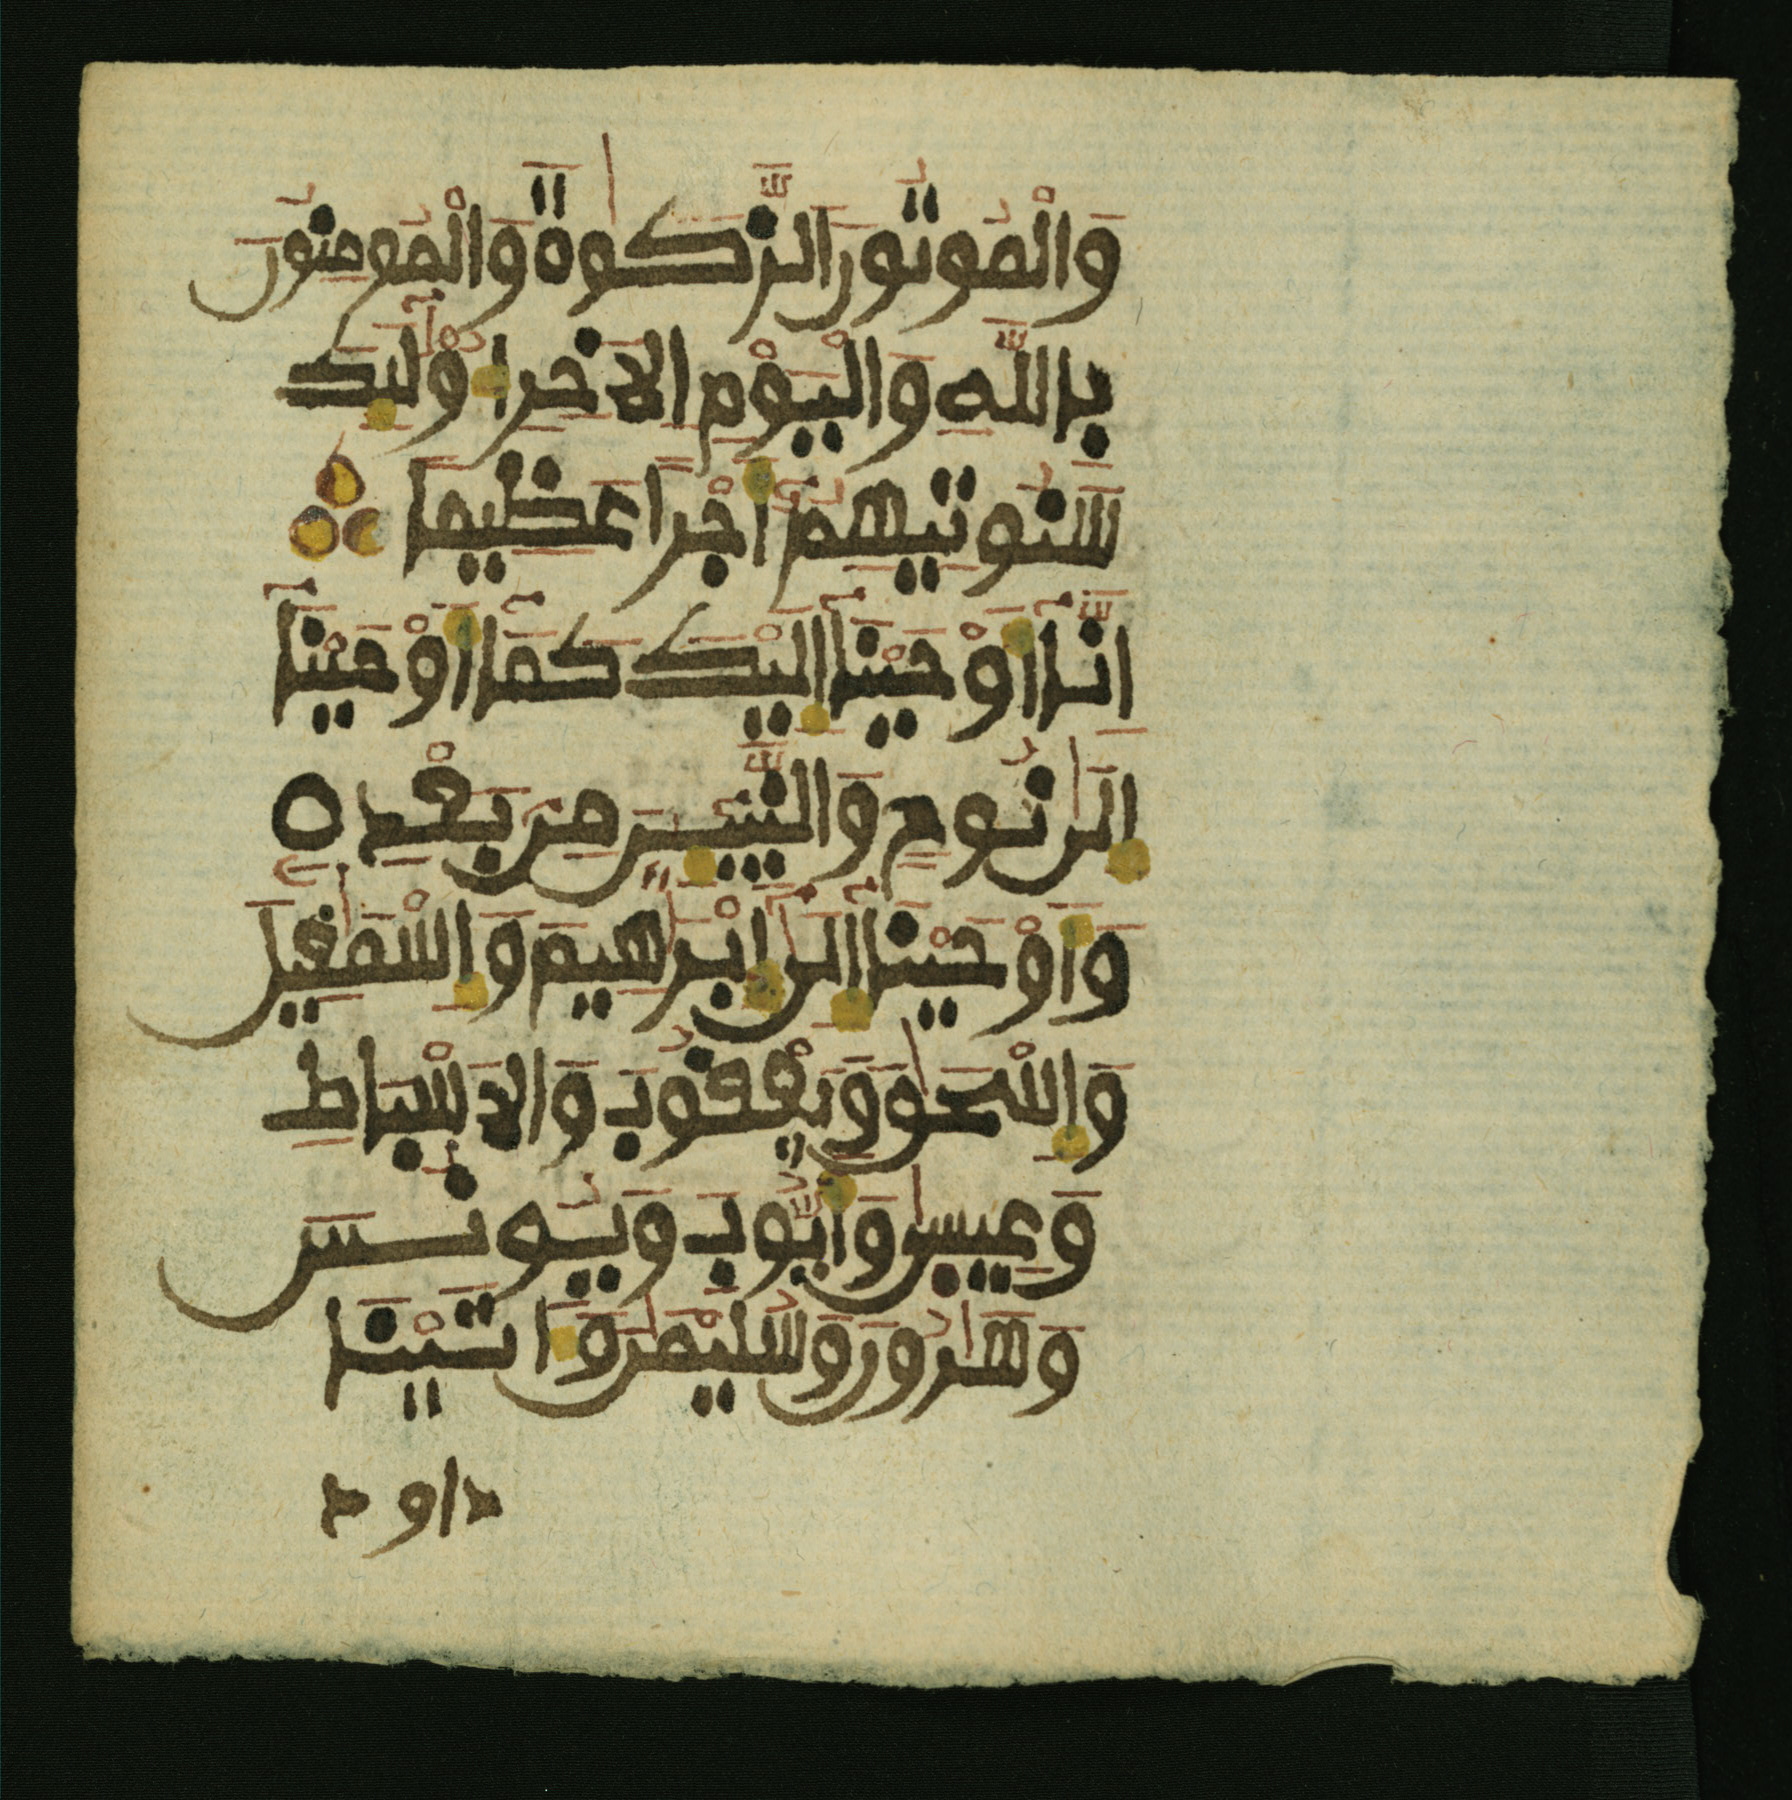 وَالْمُوتُونَ الزَّكَوٰةَ وَالْمُومِنُونَ
بِاللَّهِ وَالْيَوْمِ الاَخِرِ أُوْلَٰٓئِكَ
سَنُوتِيهِمُۥٓ أَجْرًا عَظِيمًا
إِنَّآ أَوْحَيْنَآ إِلَيْكَ كَمَآ أَوْحَيْنَآ
إِلَىٰ نُوحٍ وَالنَّبِيِٕينَ مِنۢ بَعْدِهِ
وَأَوْحَيْنَآ إِلَىٰٓ إِبْرَٰهِيمَ وَإِسْمَٰعِيلَ
وَإِسْحَٰقَ وَيَعْقُوبَ وَالاَسْبَاطِ
وَعِيسَىٰ وَأَيُّوبَ وَيُونُسَ
وَهَٰرُونَ وَسُلَيْمَٰنَ وَءَاتَيْنَا
داود